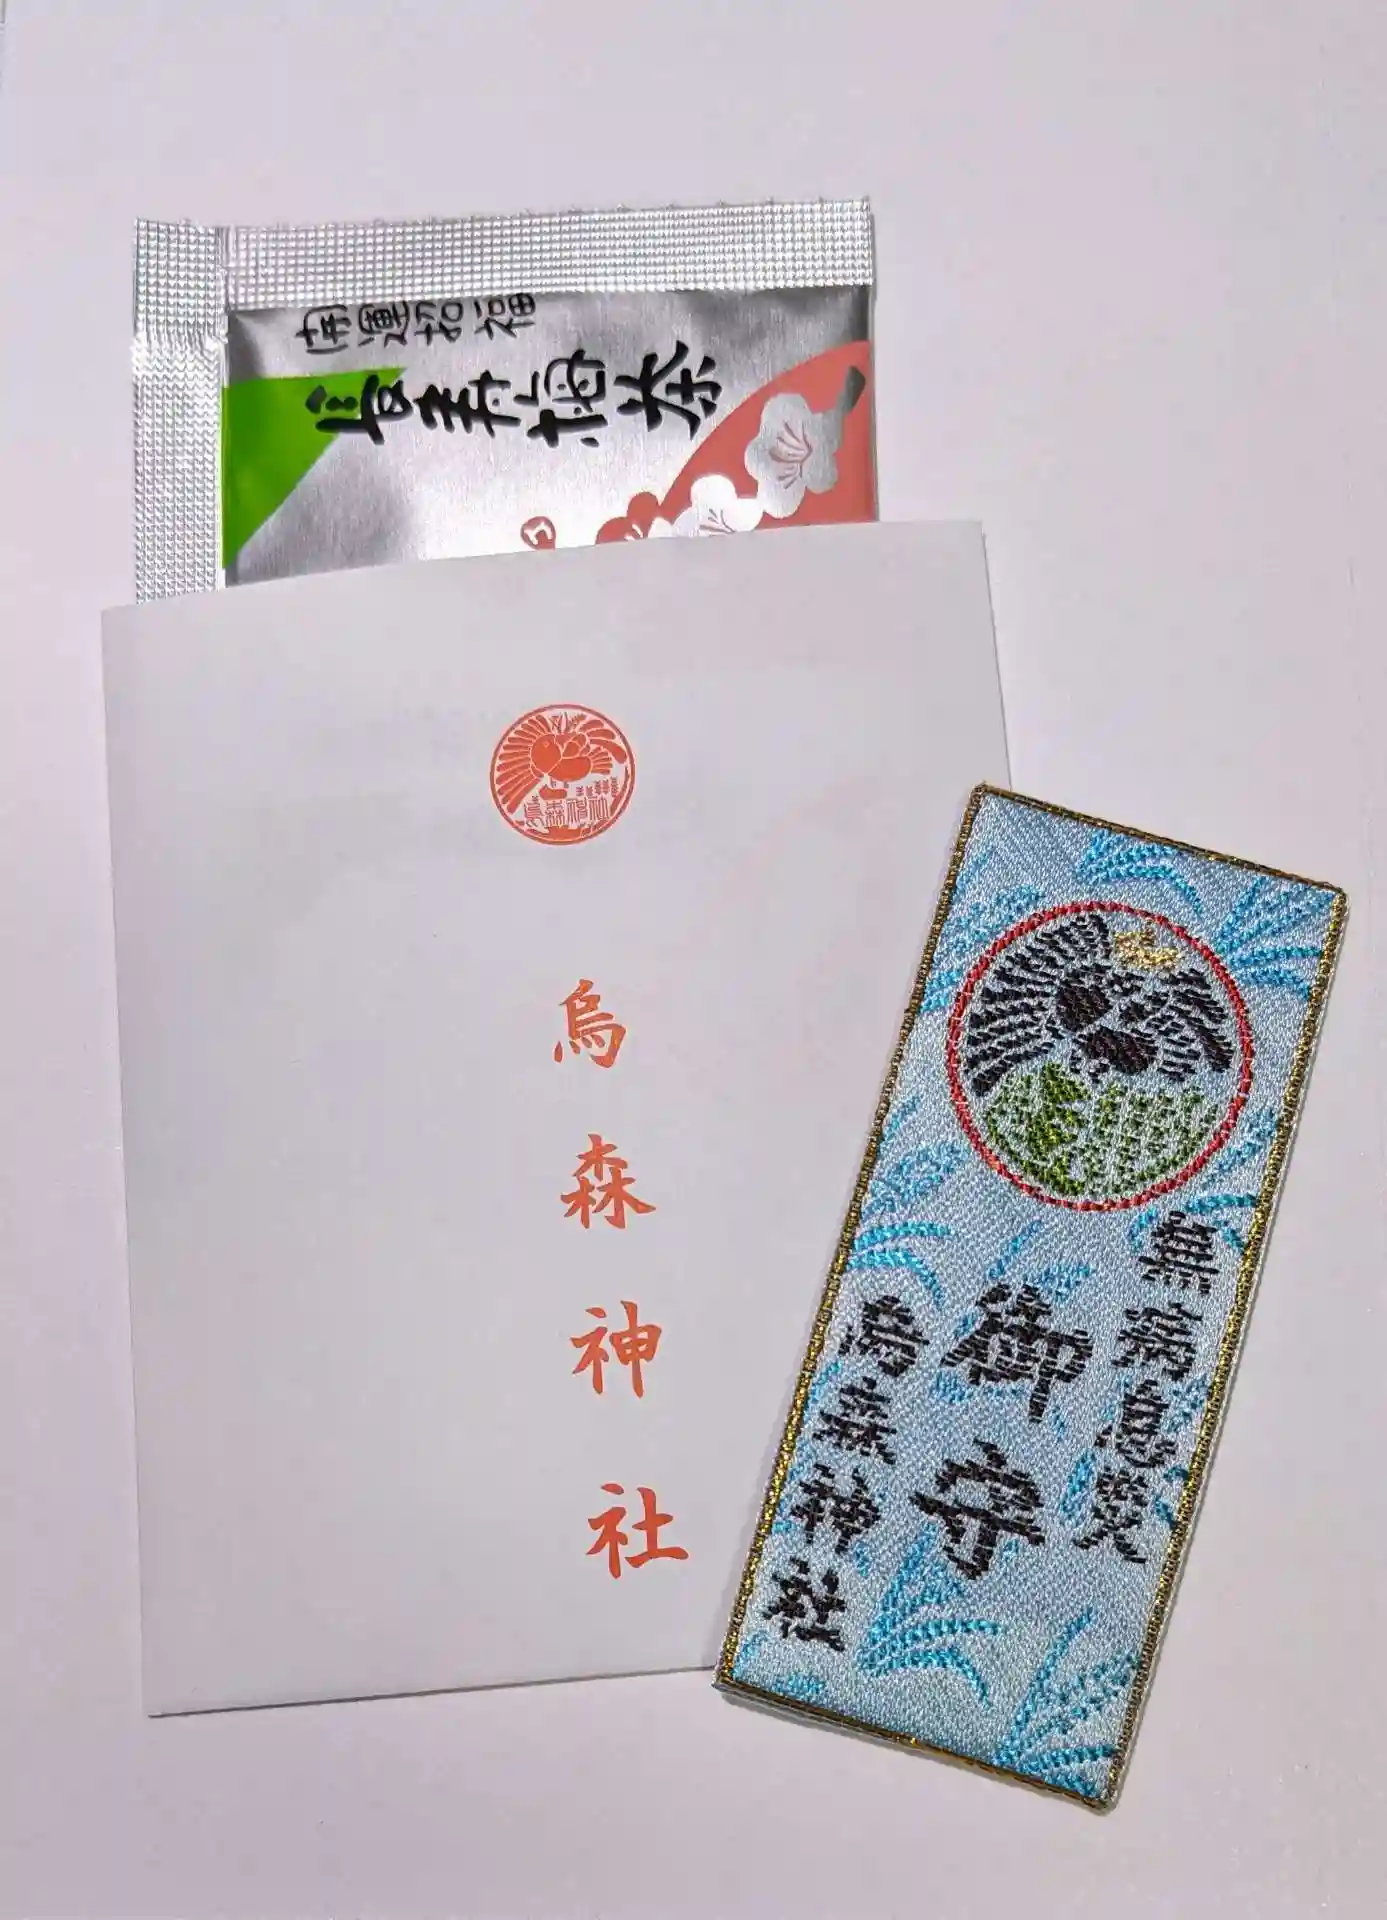 開運招福
寿梅茶
烏森神社
烏森神社
無病息災
御守
烏森神社